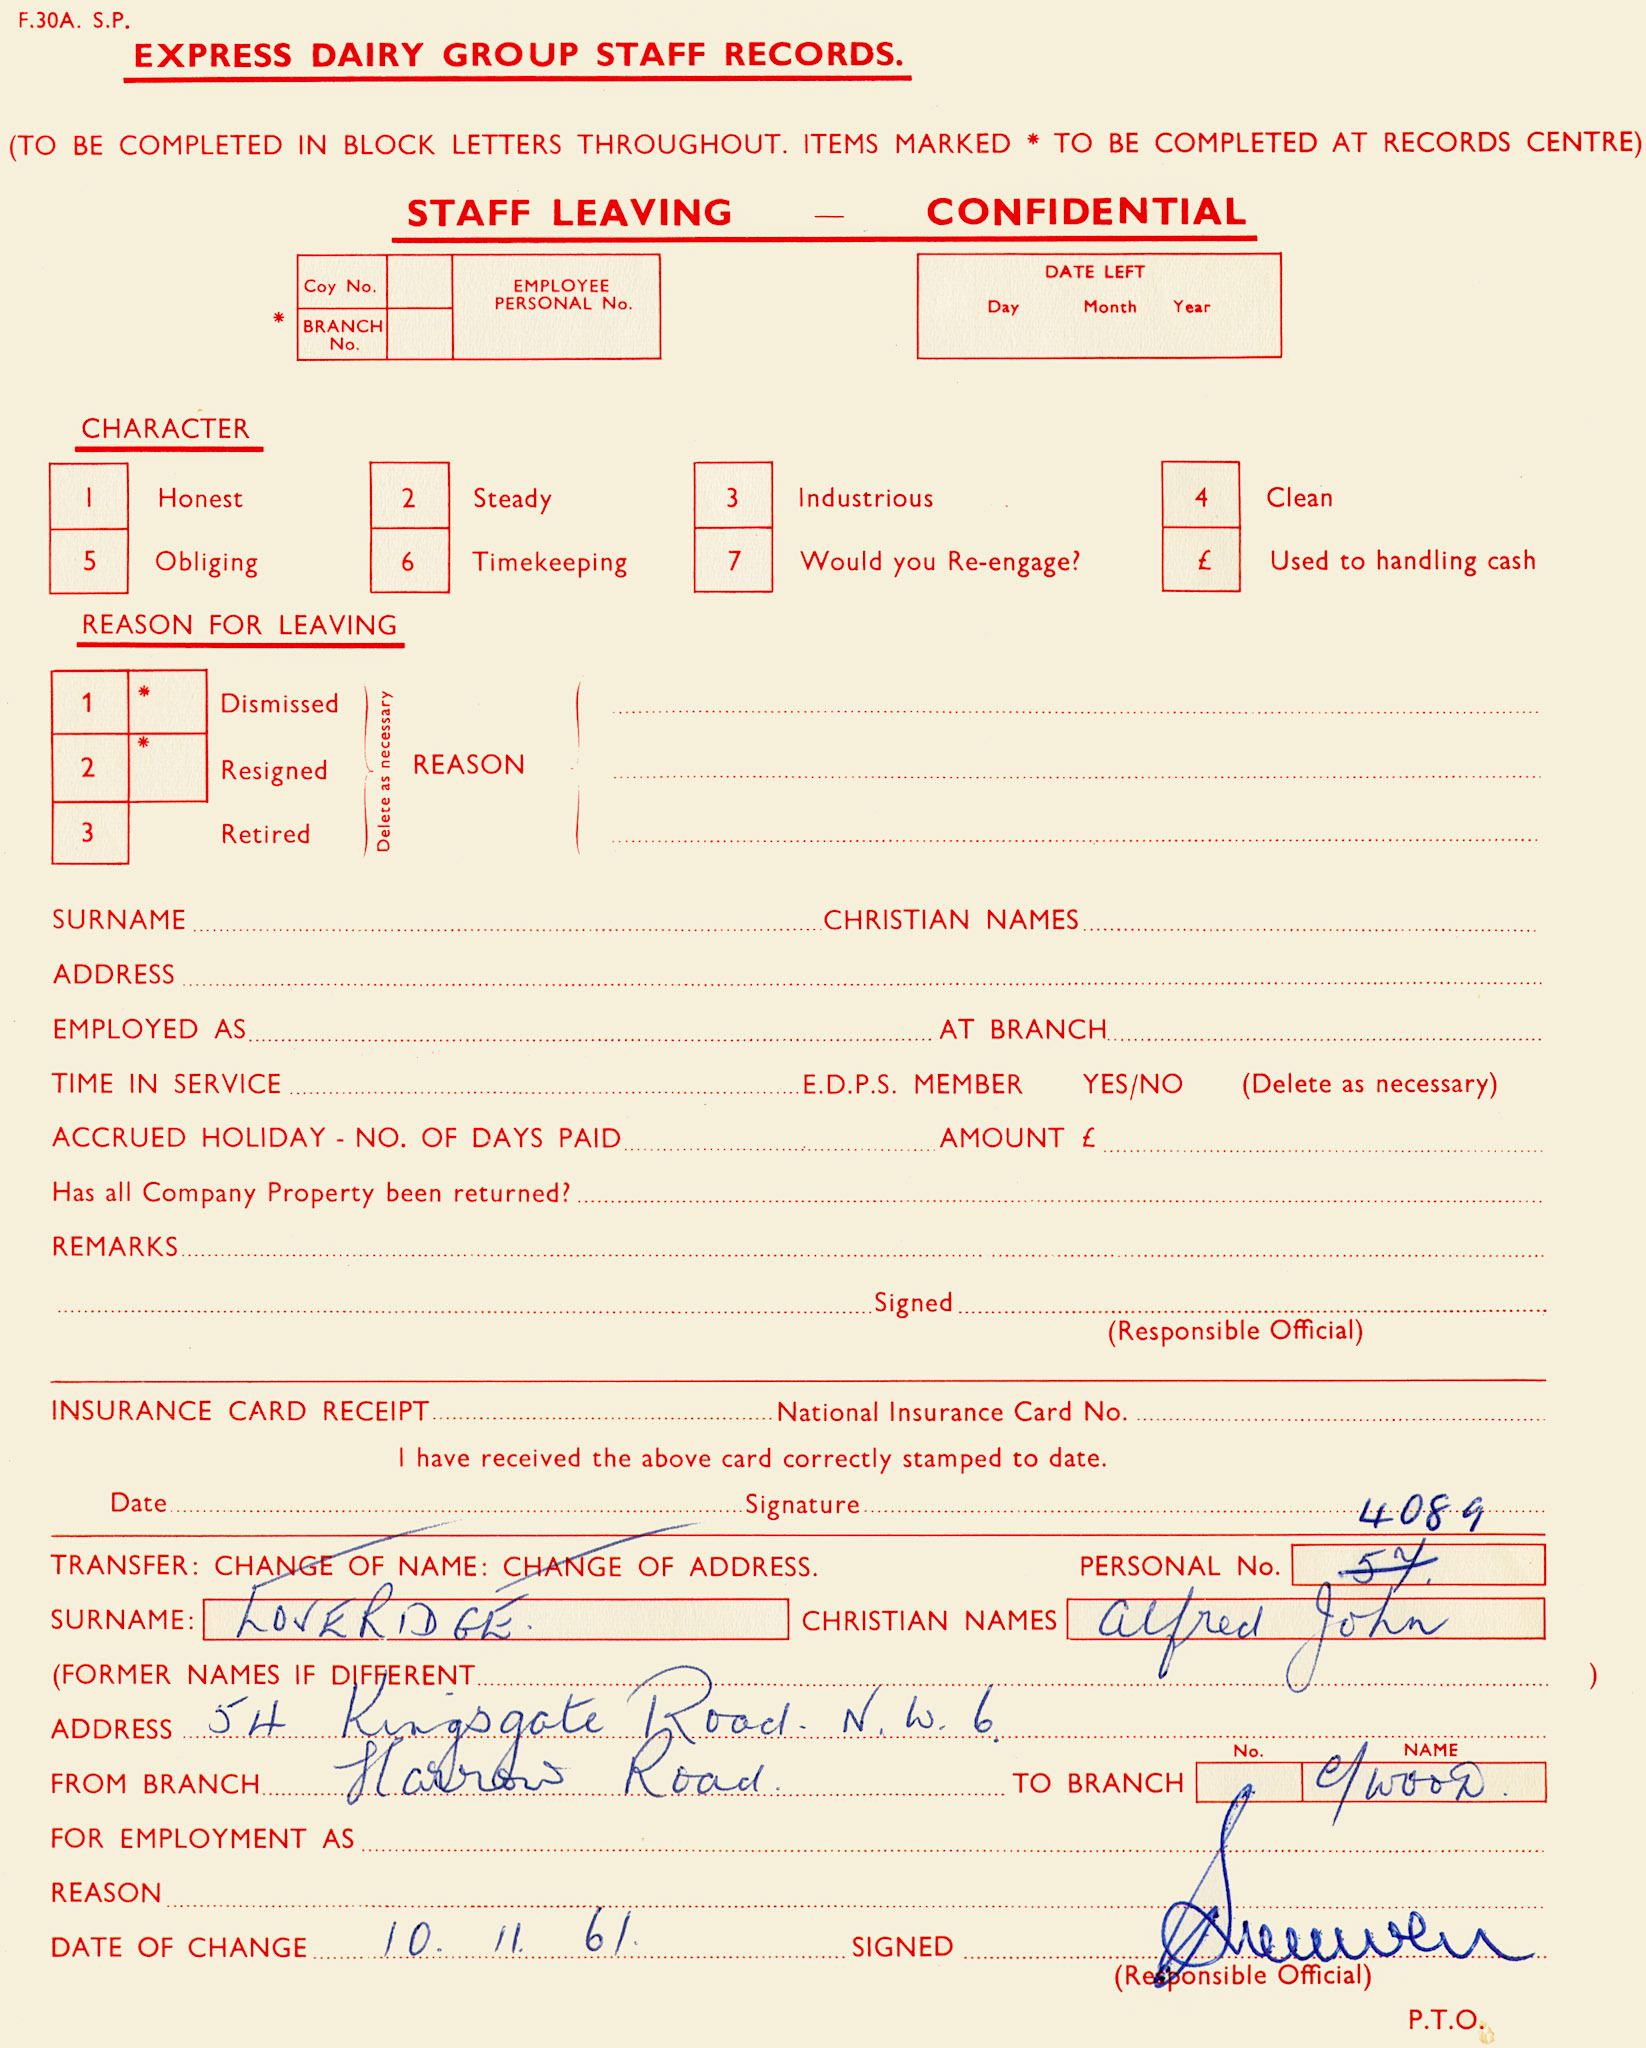 F.30A. S.P.
EXPRESS DAIRY GROUP STAFF RECORDS.
(TO BE COMPLETED IN BLOCK LETTERS THROUGHOUT. ITEMS MARKED * TO BE COMPLETED AT RECORDS CENTRE)
STAFF LEAVING — CONFIDENTIAL
Coy No.
* BRANCH No.
EMPLOYEE PERSONAL No.
DATE LEFT
Day Month Year
CHARACTER
1 Honest 2 Steady 3 Industrious 4 Clean
5 Obliging 6 Timekeeping 7 Would you Re-engage? £ Used to handling cash
REASON FOR LEAVING
1 * Dismissed
2 * Resigned
3 Retired
Delete as necessary
REASON
SURNAME CHRISTIAN NAMES
ADDRESS
EMPLOYED AS AT BRANCH
TIME IN SERVICE E.D.P.S. MEMBER YES/NO (Delete as necessary)
ACCRUED HOLIDAY - NO. OF DAYS PAID AMOUNT £
Has all Company Property been returned?
REMARKS
Signed
(Responsible Official)
INSURANCE CARD RECEIPT National Insurance Card No.
I have received the above card correctly stamped to date.
Date Signature
4089
TRANSFER: CHANGE OF NAME: CHANGE OF ADDRESS. PERSONAL No.
SURNAME: LOVERIDGE. CHRISTIAN NAMES Alfred John
(FORMER NAMES IF DIFFERENT )
ADDRESS 54 Kingsgate Road. N.W.6.
No. NAME
FROM BRANCH Harrow Road. TO BRANCH C/WOOD.
FOR EMPLOYMENT AS
REASON
DATE OF CHANGE 10. 11. 61. SIGNED
(Responsible Official)
P.T.O.